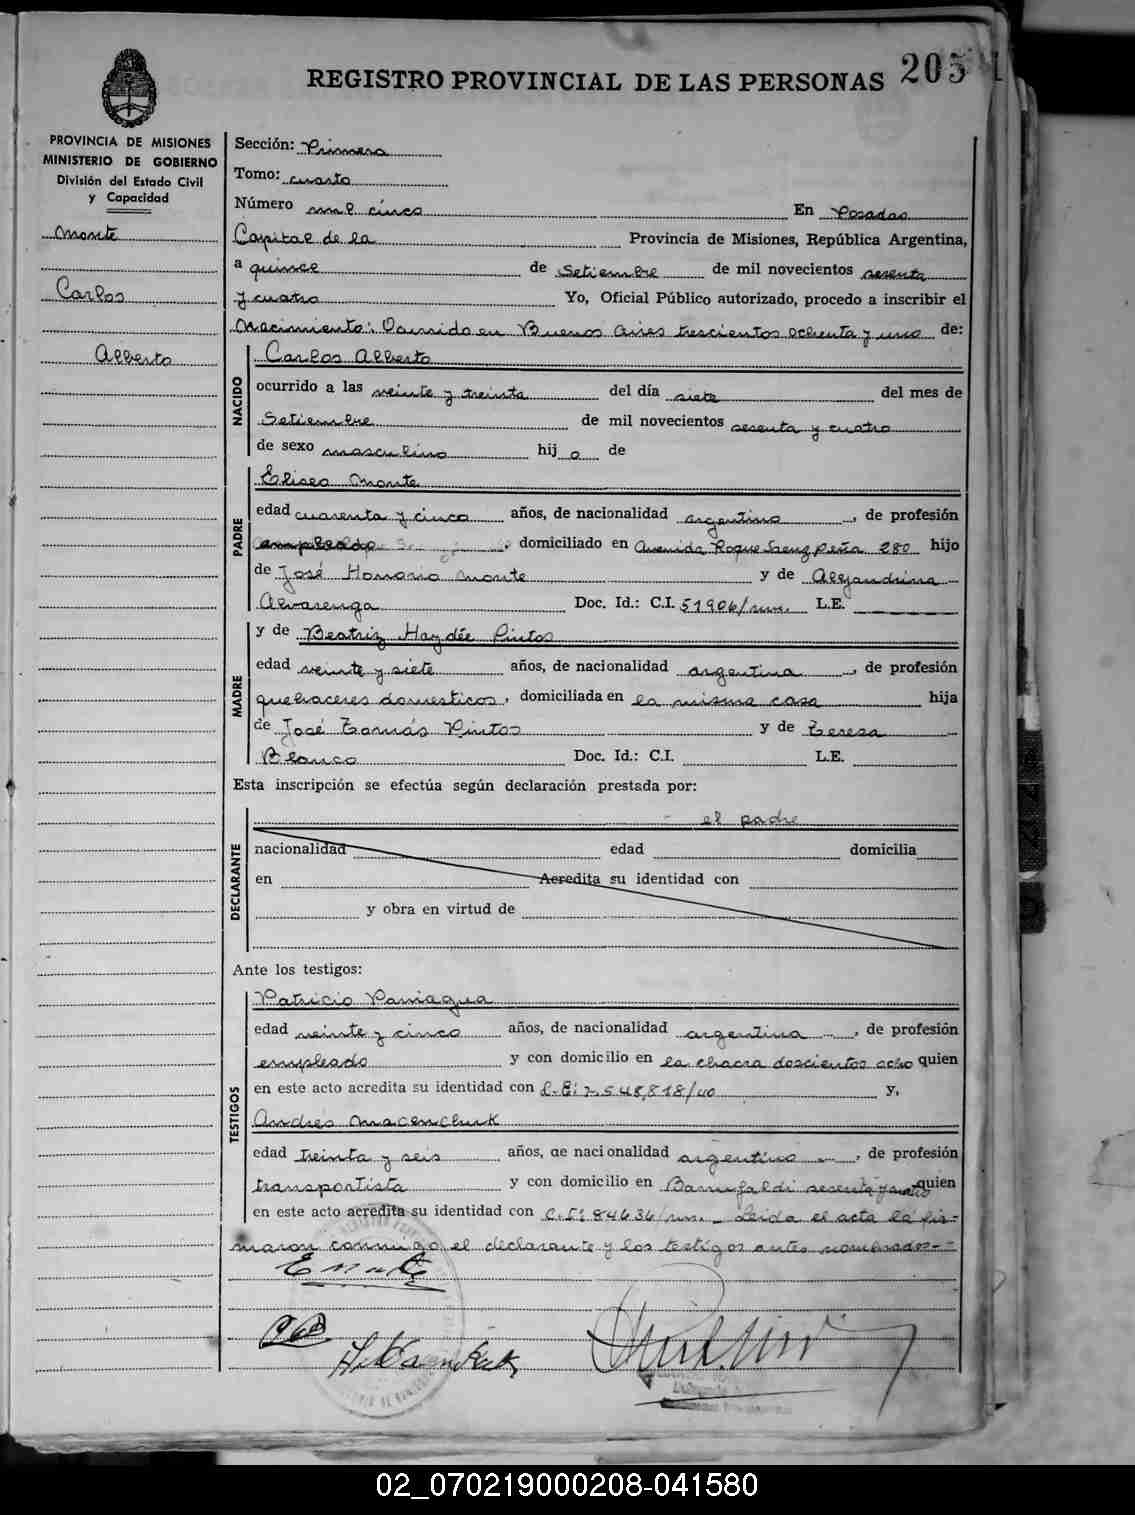 205
REGISTRO PROVINCIAL DE LAS PERSONAS
PROVINCIA DE MISIONES
MINISTERIO DE GOBIERNO
División del Estado Civil
y Capacidad
Monte
Carlos
Alberto
Sección: Primera
Tomo: cuarto
Número mil cinco En Posadas
Capital de la Provincia de Misiones, República Argentina,
a quince de Setiembre de mil novecientos sesenta
y cuatro Yo, Oficial Público autorizado, procedo a inscribir el
Nacimiento: Ocurrido en Buenos Aires trescientos ochenta y uno de:
NACIDO
Carlos Alberto
ocurrido a las veinte y treinta del día siete del mes de
Setiembre de mil novecientos sesenta y cuatro
de sexo masculino hij o de
PADRE
Eliseo Monte
edad cuarenta y cinco años, de nacionalidad argentino, de profesión
empleado, domiciliado en Avenida Roque Saenz Peña 280 hijo
de José Honorio Monte y de Alejandrina
Alvarenga Doc. Id.: C.I. 51906/mn. L.E.
MADRE
y de Beatriz Haydée Pintos
edad veinte y siete años, de nacionalidad argentina, de profesión
quehaceres domesticos, domiciliada en la misma casa hija
de José Tomás Pintos y de Teresa
Blanco Doc. Id.: C.I. L.E.
Esta inscripción se efectúa según declaración prestada por:
el padre
DECLARANTE
nacionalidad edad domicilia
en Acredita su identidad con
y obra en virtud de
Ante los testigos:
TESTIGOS
Patricio Paniagua
edad veinte y cinco años, de nacionalidad argentina, de profesión
empleado y con domicilio en la chacra doscientos ocho quien
en este acto acredita su identidad con L.E: 7.548.818/40 y,
Andres Macenchuk
edad treinta y seis años, de nacionalidad argentino, de profesión
transportista y con domicilio en Barrufaldi sesenta y cuatro quien
en este acto acredita su identidad con C.I: 84636/mn. - Leida el acta la fir-
maron conmigo el declarante y los testigos antes nombrados--
02_070219000208-041580